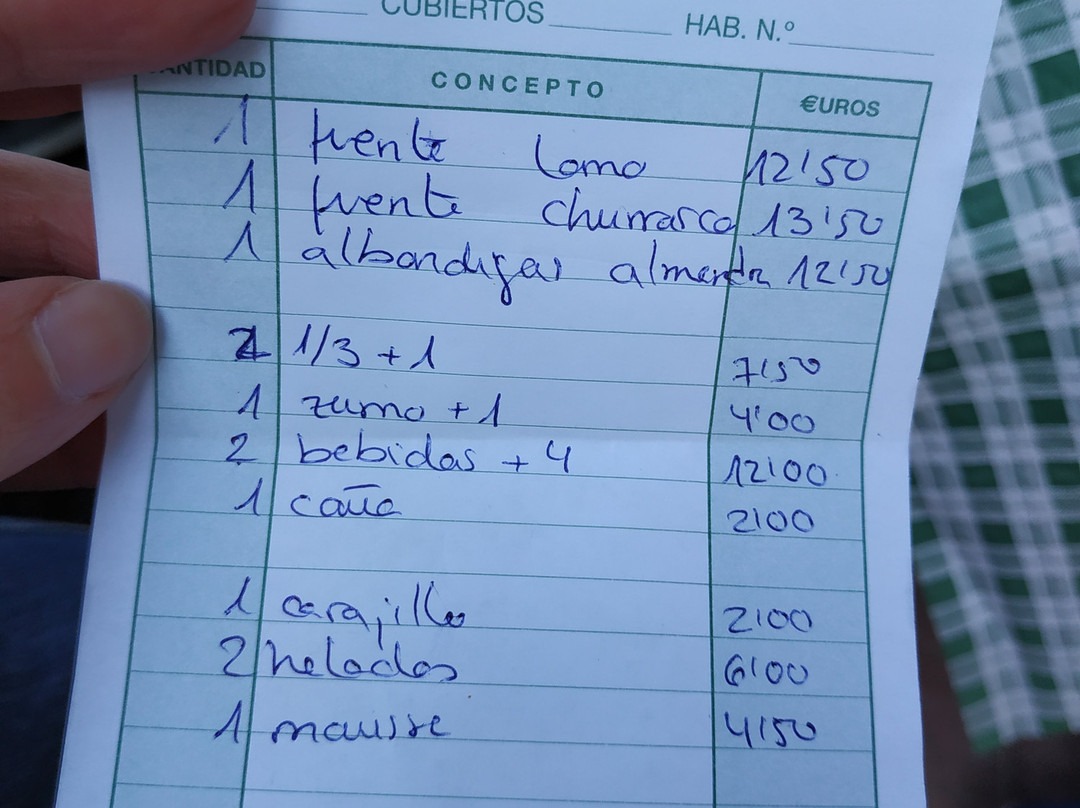 CUBIERTOS HAB. N.º
CANTIDAD CONCEPTO €UROS
1 fuente lomo 12'50
1 fuente churrasco 13'50
1 albondigas almendra 12'50
2 1/3 + 1 7'50
1 zumo + 1 4'00
2 bebidas + 4 12'00
1 caña 2'00
1 carajillo 2'00
2 helados 6'00
1 mousse 4'50